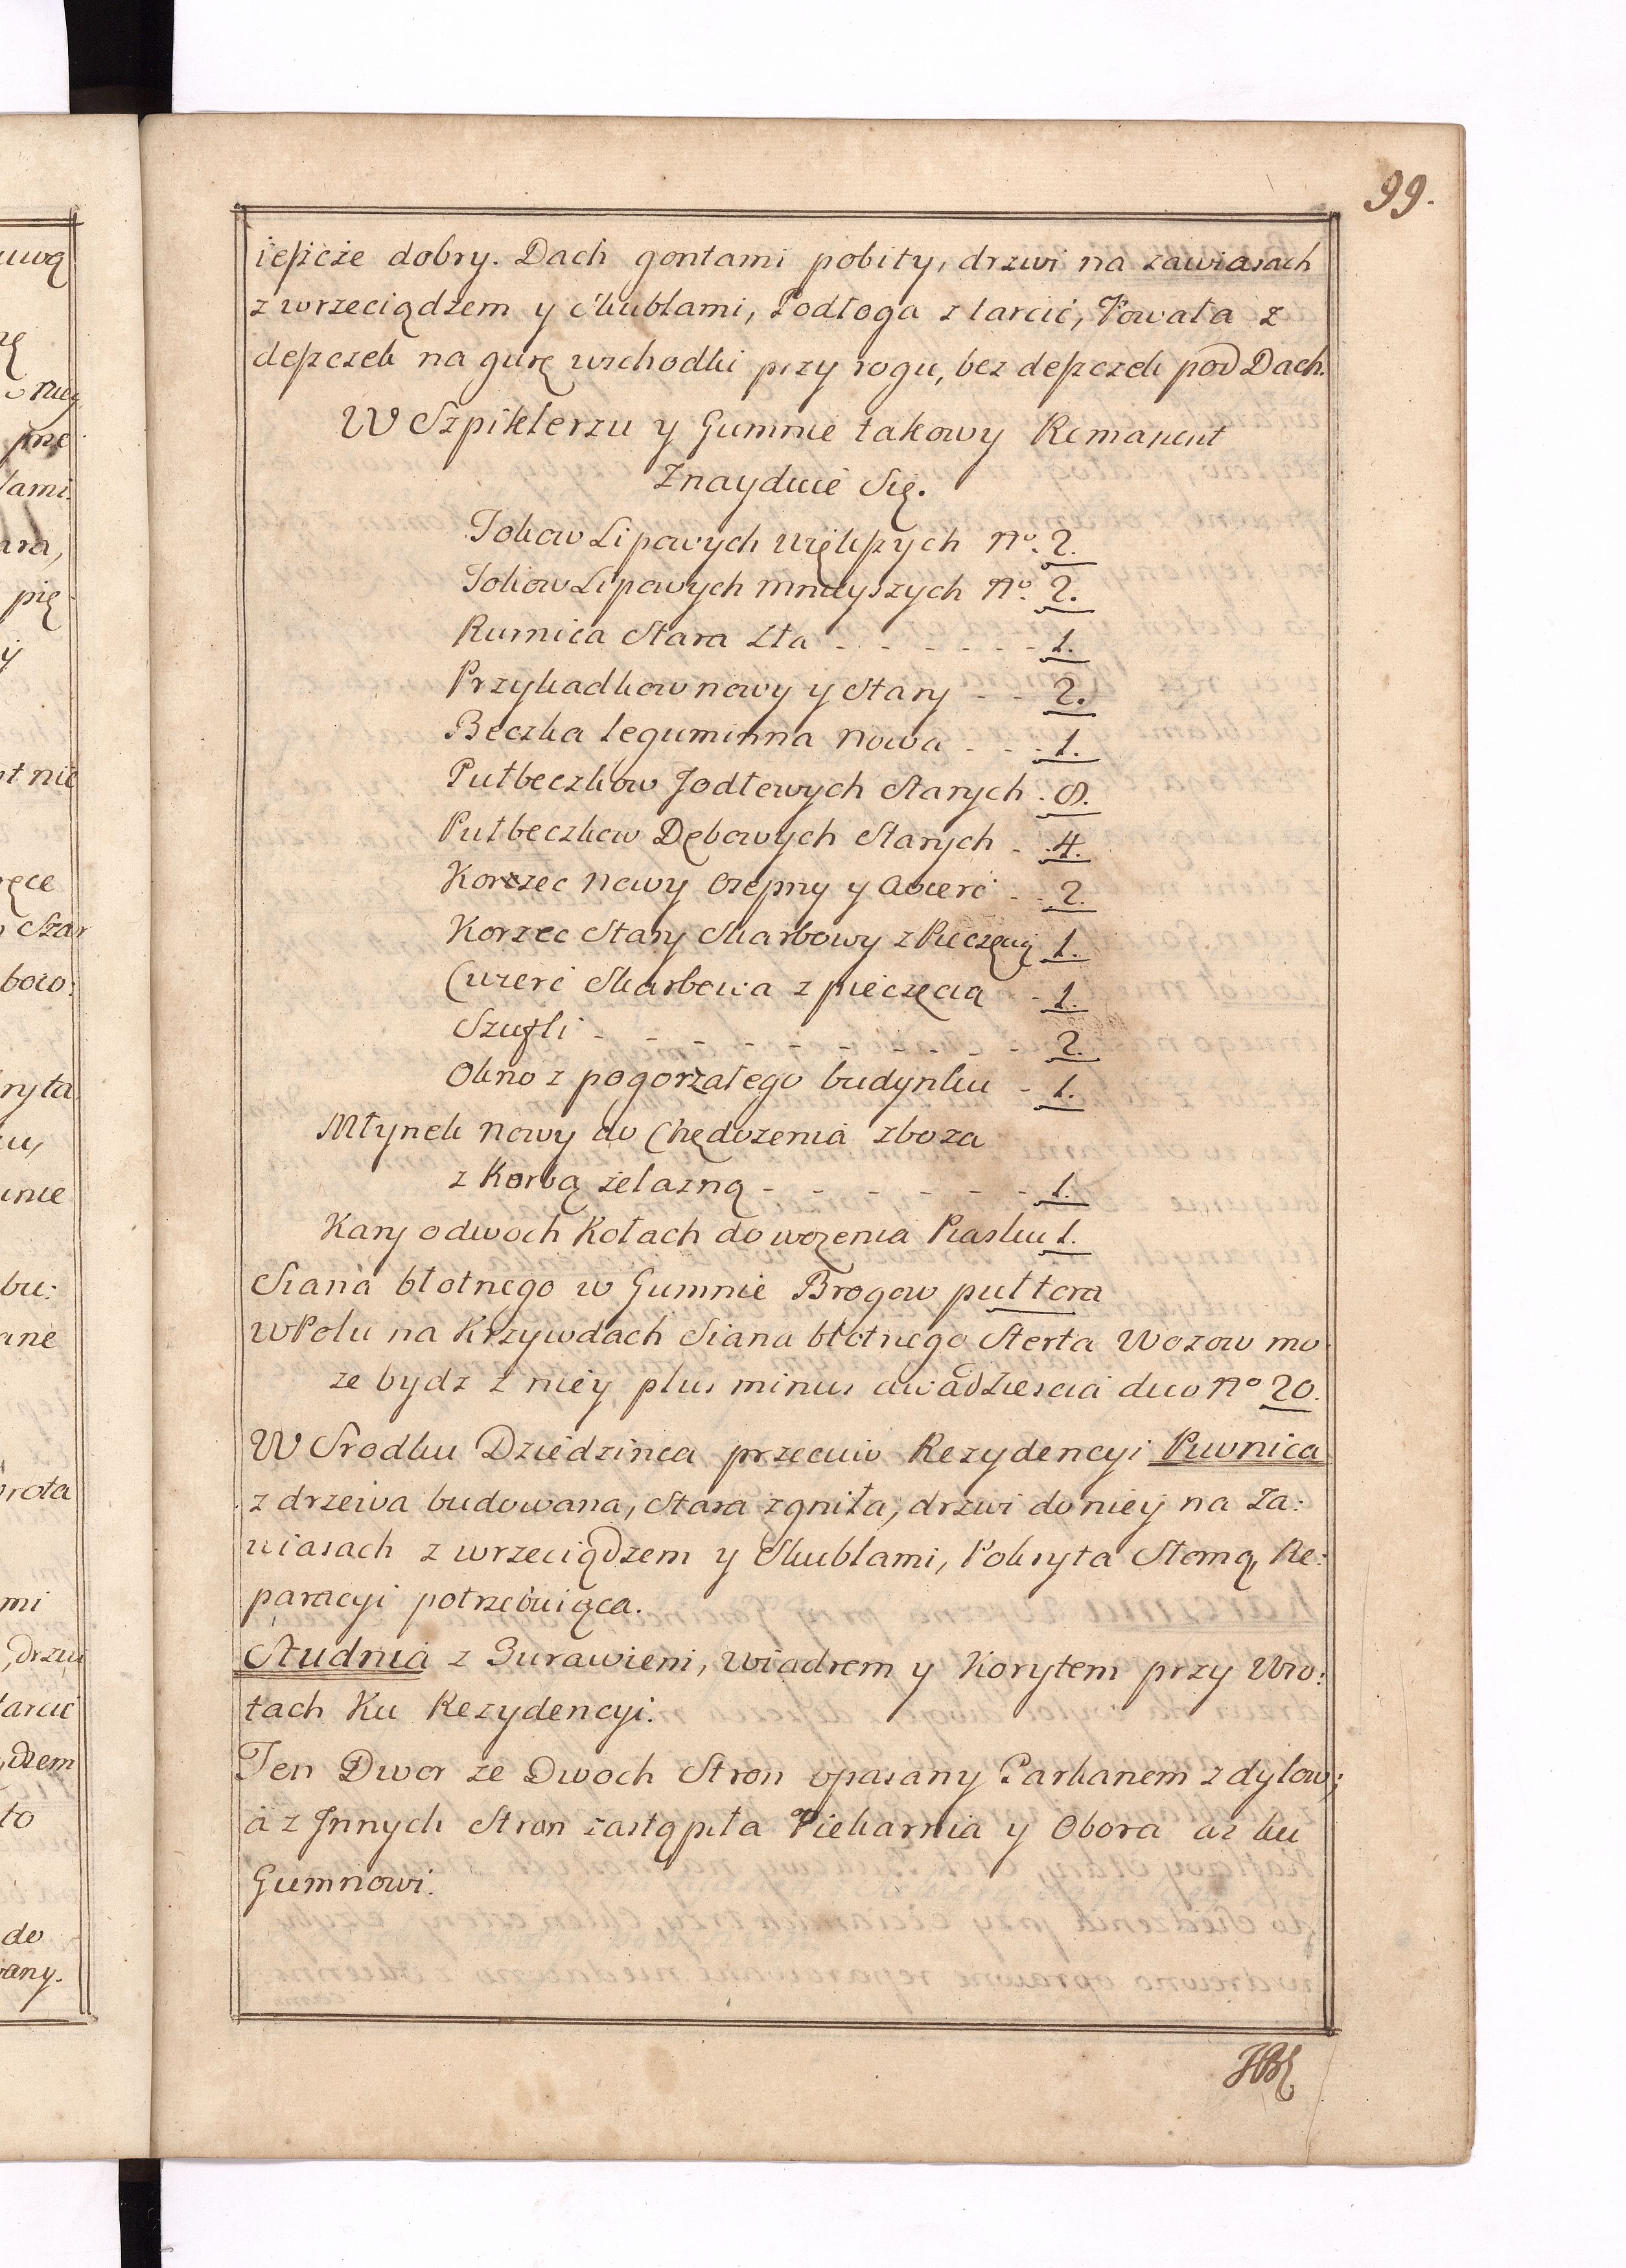 99.
ieszcze dobry. Dach gontami pobity, drzwi na zawiasach
z wrzeciądzem y Skublami, Podłoga z tarcic, Powała z
deszczek na gurę wschodki przy rogu, bez deszczek pod Dach.
W Szpiklerzu y Gumnie takowy Remanent
Znayduie Się.
Tokow Lipowych większych No. 2.
Tokow Lipowych mnieyszych No. 2.
Rurnica Stara zła - - - - - - - 1.
Przykadkow nowy y Stary - - 2.
Beczka leguminna nowa - - - 1.
Pułbeczkow Jodłowych Starych . 8.
Pułbeczkow Dębowych Starych - . 4.
Korzec nowy ozepny y cwierć - - 2.
Korzec Stary Skarbowy z Pieczęcią 1.
Cwierć Skarbowa z pieczęcią - 1.
Szufli - - - - - - - - - - 2.
Okno z pogorzałego budynku - 1.
Młynek nowy do Chędozenia zboza
z Korbą zelazną - - - - - - 1.
Kary o dwoch Kołach do wozenia Piasku 1.
Siana błotnego w Gumnie Brogow pułtora
w Polu na Krzywdach Siana błotnego Sterta Wozow mo:
ze bydz z niey plus minus dwadziescia duo No 20.
W Srodku Dziedzinca przeciw Rezydencyi Piwnica
z drzewa budowana, Stara zgniła, drzwi do niey na Za:
wiasach z wrzeciądzem y Skublami, Pokryta Słomą, Re:
paracyi potrzebuiąca.
Studnia z Zurawiem, wiadrem y Korytem przy Wro:
tach Ku Rezydencyi.
Ten Dwor ze Dwoch Stron opasany Parkanem z dylow;
a z Jnnych Stron zastąpiła Piekarnia y Obora az ku
Gumnowi.